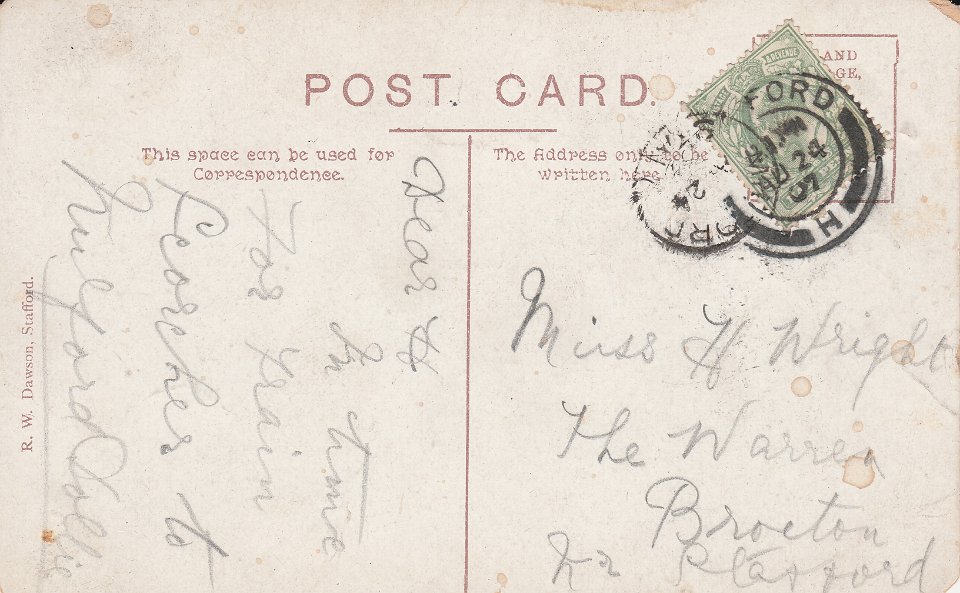 POST CARD.
This space can be used for
Correspondence.
The Address only to be
written here
AND
GE,
Dear H
in time
for train
Coaches to
Milford Dollie
R. W. Dawson, Stafford.
Miss H Wright
The Warren
Brocton
Nr Stafford
FORD
AU 24
07
H